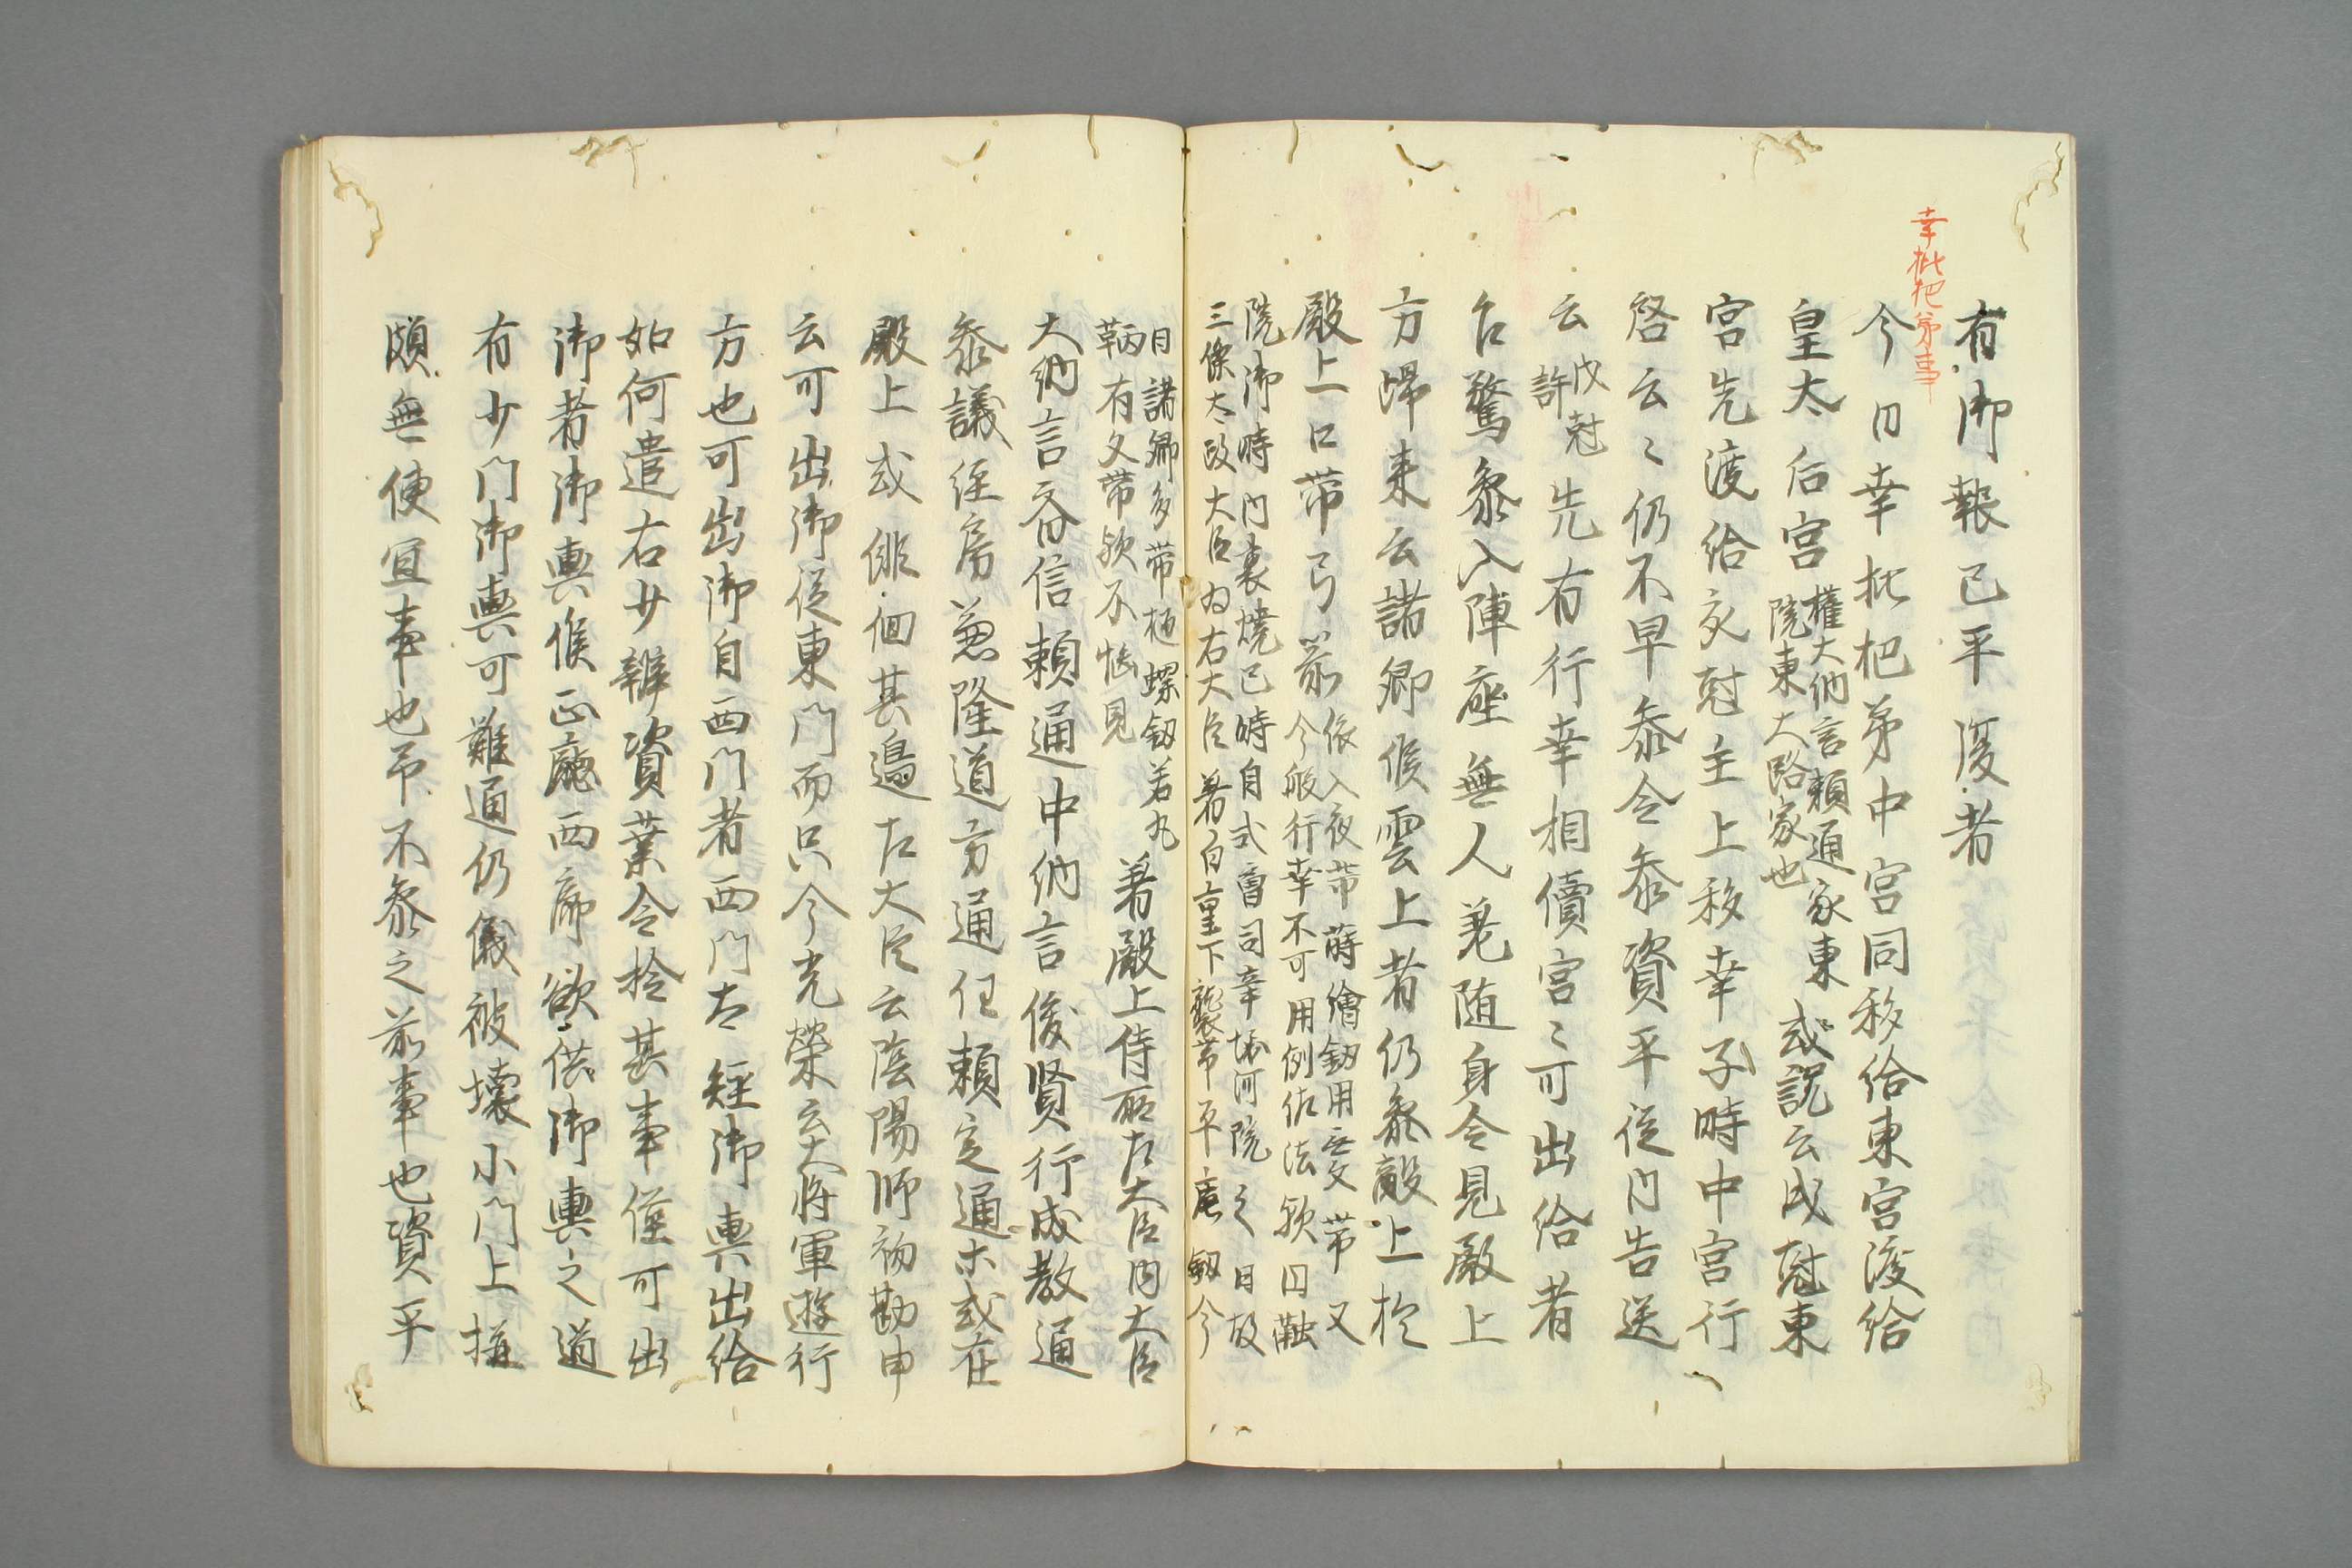 幸枇杷第事
有御報已平復者
今日幸枇杷第中宮同移給東宮渡給
皇太后宮権大納言頼通家東
院東大路家也或説云戌剋東
宮先渡給亥剋主上移幸子時中宮行
啓云々仍不早参令参資平従内告送
云戌剋
許先有行幸相續宮々可出給者
乍驚参入陣座無人差随身令見殿上
方帰来云諸卿候雲上者仍参殿上於
殿上口帯弓箭依入夜帯蒔繪釼用無文帯又
今般行幸不可用例佐法歟円融
院御時内裏焼已時自式曹司幸堀河院之日故
三條太政大臣為右大臣着白重下襲帯平塵釼今
日諸卿多帯樋螺釼若丸
鞆有文帯歟不慥見着殿上侍所左大臣内大臣
大納言斉信頼通中納言俊賢行成教通
参議経房兼隆道方通任頼定通亦或在
殿上或俳徊其邊左大臣云陰陽師初勘申
云可出御従東門而只今光榮云大将軍遊行
方也可出御自西門者西門太 経御輿出給
如何遣右少辨資業令捡其事僅可出
御者御輿候正廰西廊欲供御輿之道
有少門御輿可難通仍儀被壊小門上構
頗無使宜事也帋不参之前事也資平